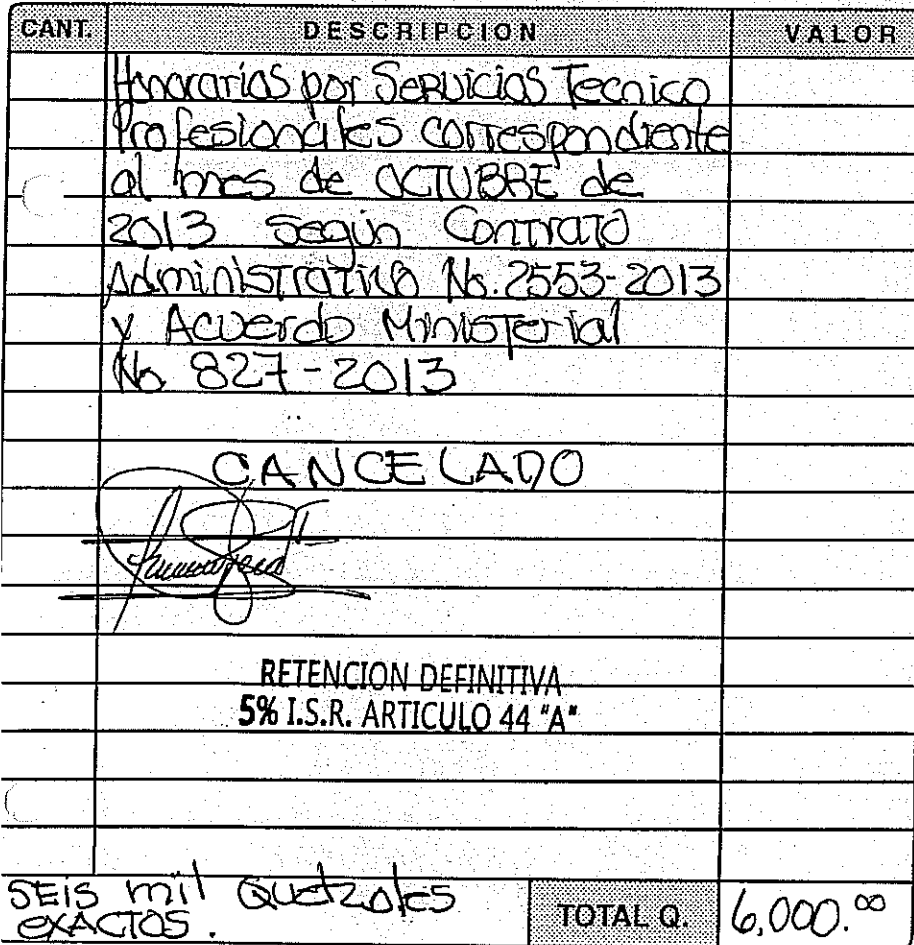 CANT. DESCRIPCION VALOR
Honorarios por Servicios Tecnico
Profesionales correspondiente
al mes de OCTUBRE de
2013 según Contrato
Administrativo No. 2553-2013
y Acuerdo Ministerial
No 827-2013
CANCELADO
RETENCION DEFINITIVA
5% I.S.R. ARTICULO 44 "A"
SEIS mil Quetzales
EXACTOS.
TOTAL Q. 6,000.00